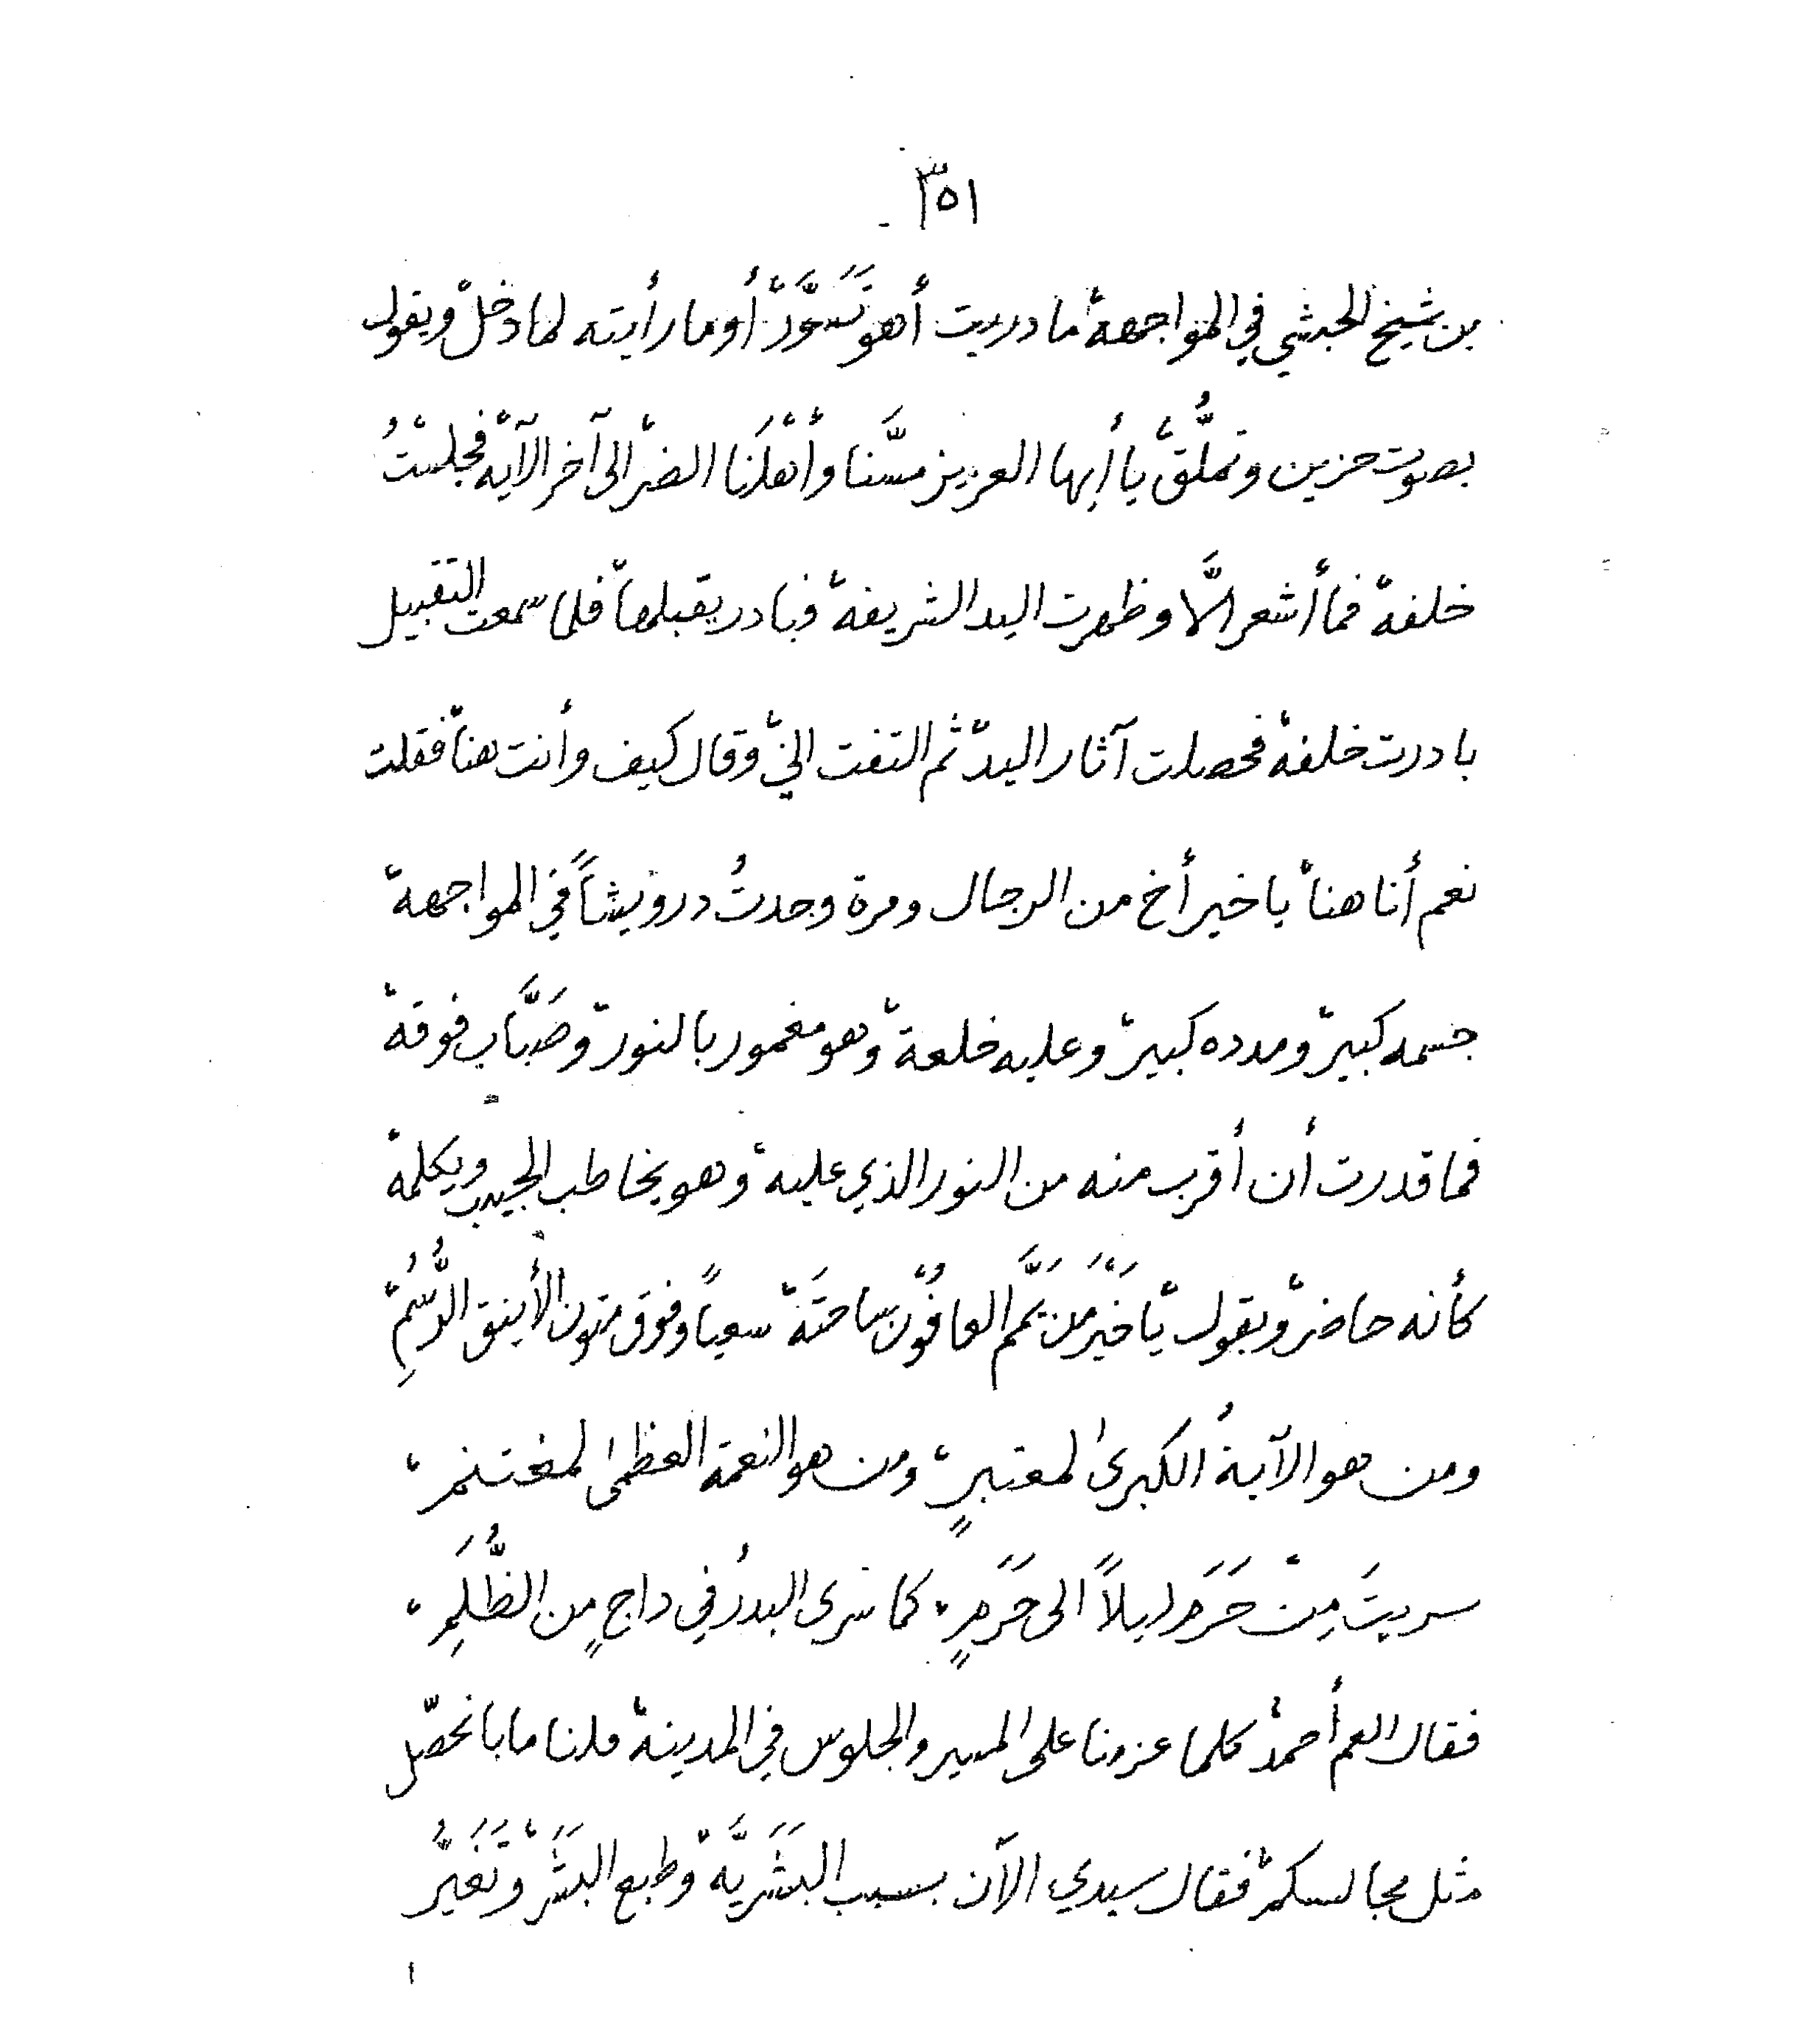 ٣٥١
بن شيخ الحبشي في المواجهة، ما دريت أهو تَسَوَّرْ، أو ما رأيته لما دخل، ويقول
بصوت حزين وتملُّقْ، يا أيها العزيز مسَّنا وأهْلَنا الضر، الى آخر الآية، فجلسْتُ
خلفه، فما أشعر الَّا وظهرت اليد الشريفة، فبادر يقبلها، فلما سمعت التقبيل
بادرت خلفه، فحصلت آثار اليد، ثم التفت اليّ، وقال كيف وأنت هنا، فقلت
نعم أنا هنا، يا خير أخ من الرجال ومرة وجدتُ درويشاً في المواجهة،
جسمه كبير، ومدده كبير، وعليه خلعة، وهو مغمور بالنور، وصَبَّاب فوقه،
فما قدرت أن أقرب منه من النور الذي عليه، وهو يخاطب الحبيب ويكلمه،
كأنه حاضر، ويقول، يَا خَيْرَ مَن يَمَّم العافُوْن ساحتَهُ، سعياً وفوق متون الأينق الرُّسُمِ،
ومن هو الآيةُ الكبرى لمعتبرٍ، ومن هو النعمة العظمى لمغتنم،
سريتَ مِنْ حَرَم ليلاً الى حَرَمٍ، كما سرى البدرُ في داجٍ من الظُّلَمِ،
فقال العم أحمد، كلما عزمنا على المسير والجلوس في المدينة، قلنا ما با نحصّل
مثل مجالسكم، فقال سيدي الآن بسبب البَشَرِيَّة، وطبع البَشَرْ، وتَغَيُّر